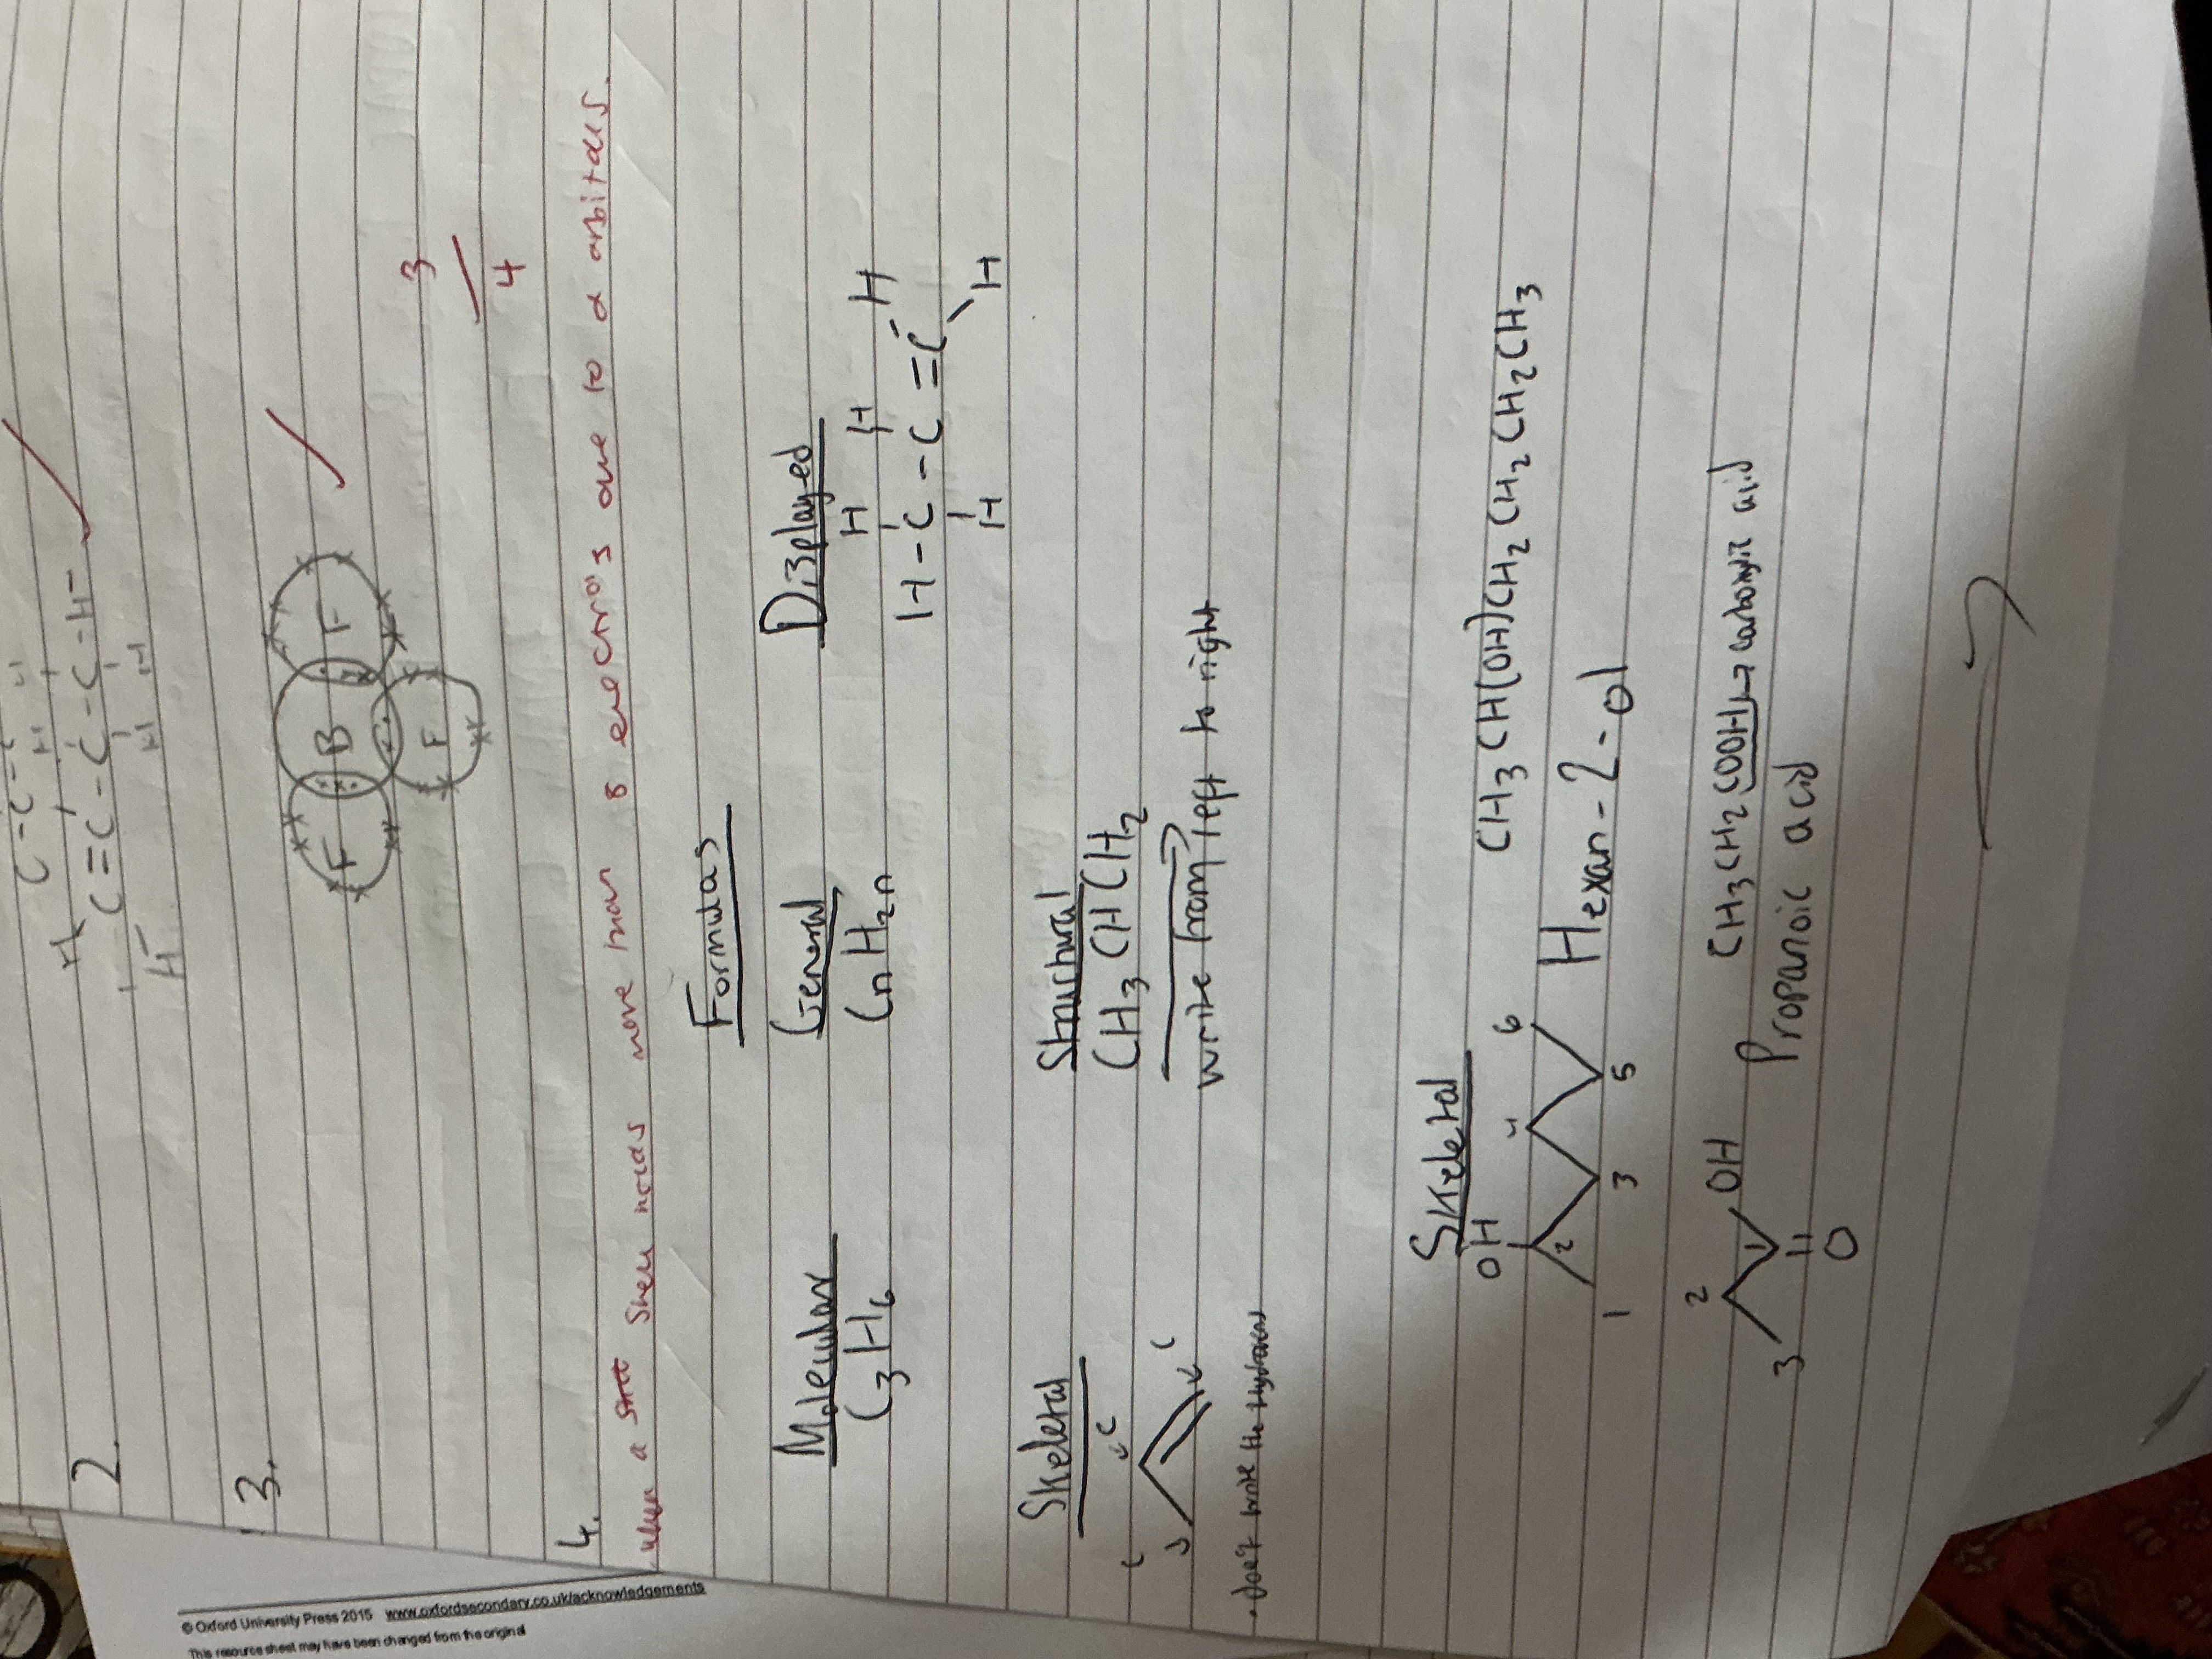 C-C-C
2.
H
H H
C=C-C-C-H
H H H
3.
F B F
F
3
4
4.
when a shell holds more than 8 electro's due to d orbitals.
Formulas
Molecular General Displayed
C3H6 CnH2n
H H H
H-C-C=C
H H
Skeletal Structural
C C C
CH3CHCH2
write from left to right
. don't write the Hydrogens
Skeletal
OH
1 2 3 4 5 6
CH3CH(OH)CH2CH2CH2CH2CH3
Hexan-2-ol
3 2 1 OH
O
CH3CH2COOH→carboxylic acid
Propanoic acid
© Oxford University Press 2015 www.oxfordsecondary.co.uk/acknowledgements
This resource sheet may have been changed from the original